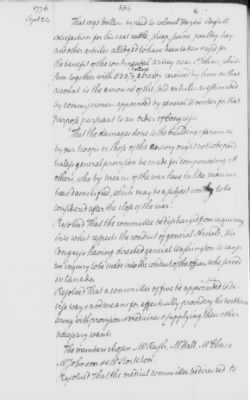 1776
Sept 24
That 1095 dollars be paid to colonel Hazen in full
satisfaction for his neat cattle, sheep, swine, poultry, hay
and other articles alledged to have been taken & used for
the benefit of the continental army near St Johns, which
sum together with 533⅓ dollars already received by him on that
account is the amount of the hay and articles as estimated
by commissioners appointed by general Wooster for that
purpose pursuant to an order of congress.
That the damages done to the buildings farm &c
by our troops or those of the enemy ought not to be paid
unless general provision be made for compensating all
others, who by means of the war have in like manner
been damnified, which may be a subject worthy to be
considered after the close of the war.
Resolved That the committee be discharged from enquiring
into what respects the conduct of general Arnold, this
Congress having directed general Washington to cause
an enquiry to be made into the conduct of the officers who served
in Canada.
Resolved That a committee of five be appointed to de-
vise ways and means for effectually providing the northern
army with provisions & medicines & supplying their other
necessary wants.
The members chosen Mr Rush, Mr Hall, Mr Chase
Mr Johnson & Mr Stockton.
Resolved That the medical committee be directed to